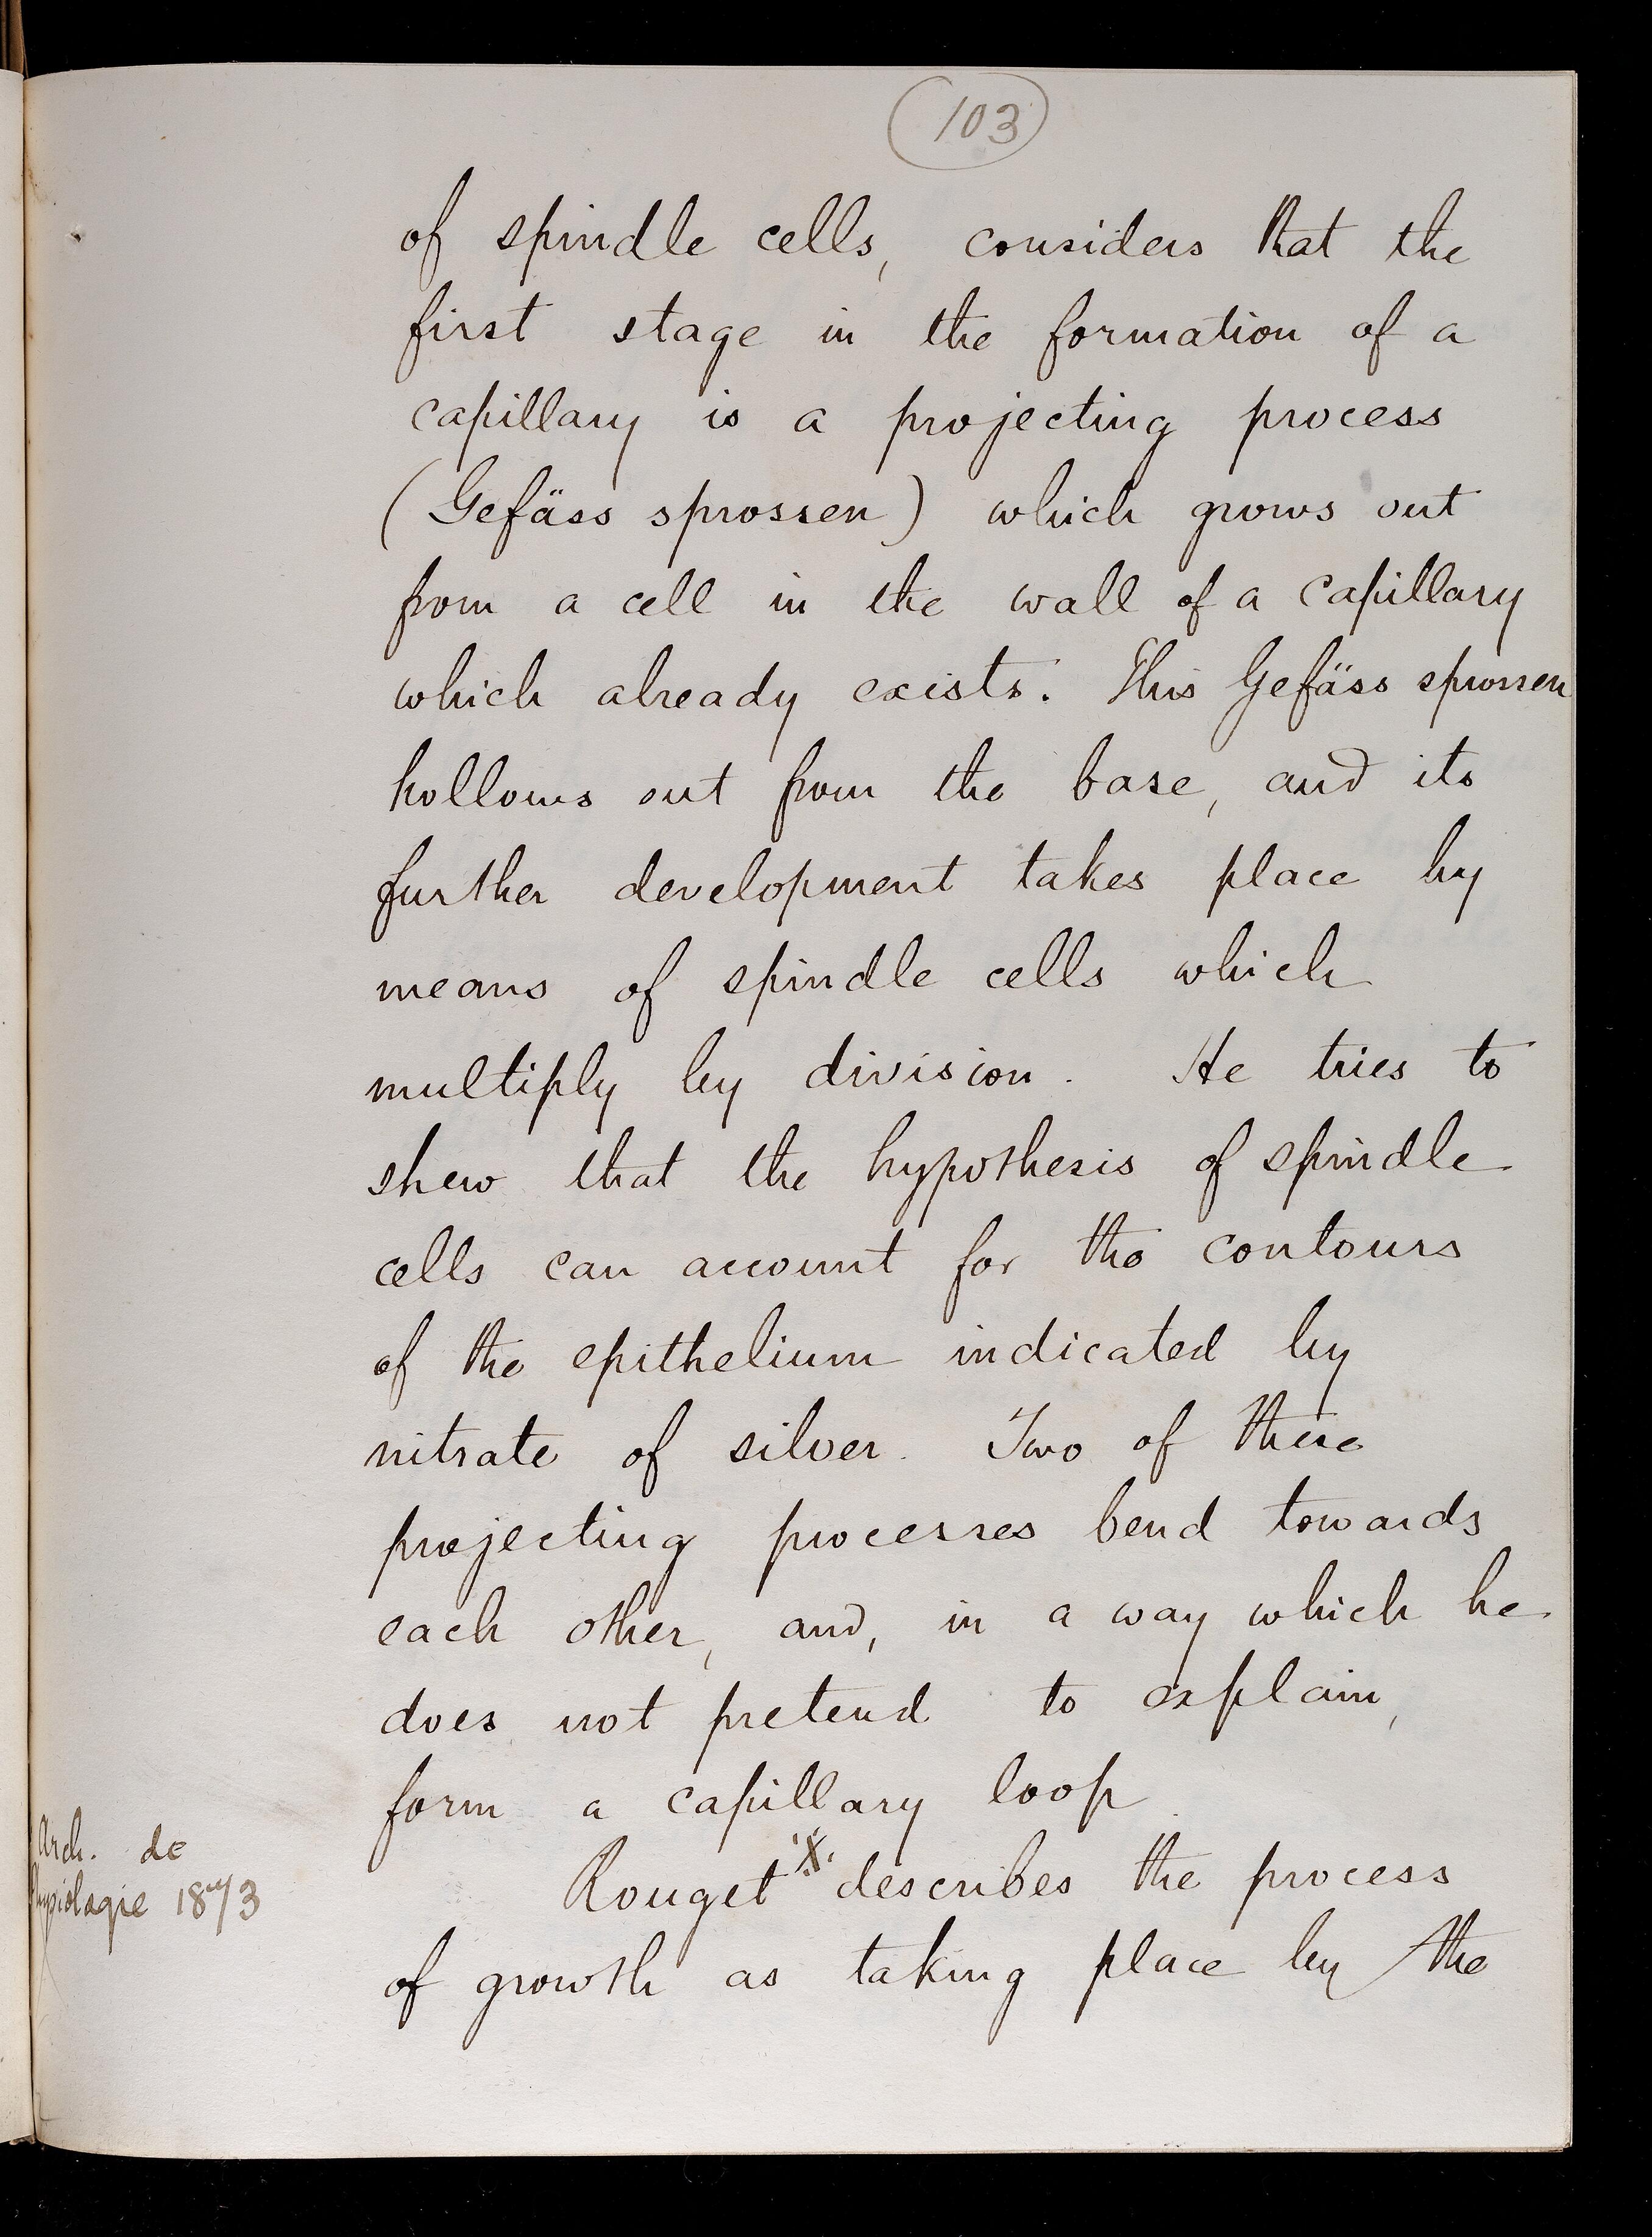 103
of spindle cells, considers that the
first stage in the formation of a
capillary is a projecting process
(Gefäss sprossen) which grows out
from a cell in the wall of a capillary
which already exists. This Gefäss sprossen
hollows out from the base, and its
further development takes place by
means of spindle cells which
multiply by division. He tries to
shew that the hypothesis of spindle
cells can account for the contours
of the epithelium indicated by
nitrate of silver. Two of these
projecting processes bend towards
each other, and, in a way which he
does not pretend to explain,
form a capillary loop.
Arch. de
Physiologie 1873
Rouget x describes the process
of growth as taking place by the